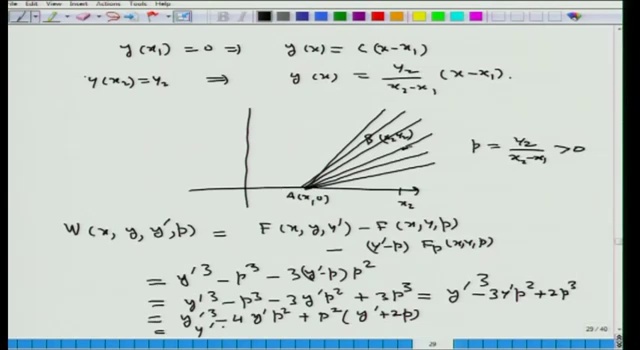 File Edit View Insert Actions Tools Help
y(x₁) = 0 ⇒ y(x) = C(x-x₁)
y(x₂) = y₂ ⇒ y(x) = y₂/(x₂-x₁) (x-x₁).
B(x₂,y₂)
p = y₂/(x₂-x₁) > 0
A(x₁,0) x₂
W(x, y, y', p) = F(x, y, y') - F(x, y, p)
- (y'-p) Fp(x,y,p)
= y'³ - p³ - 3(y'-p)p²
= y'³ - p³ - 3y'p² + 3p³ = y'³ - 3y'p² + 2p³
= y'³ - 4y'p² + p²(y'+2p)
= y'
29 / 40
29